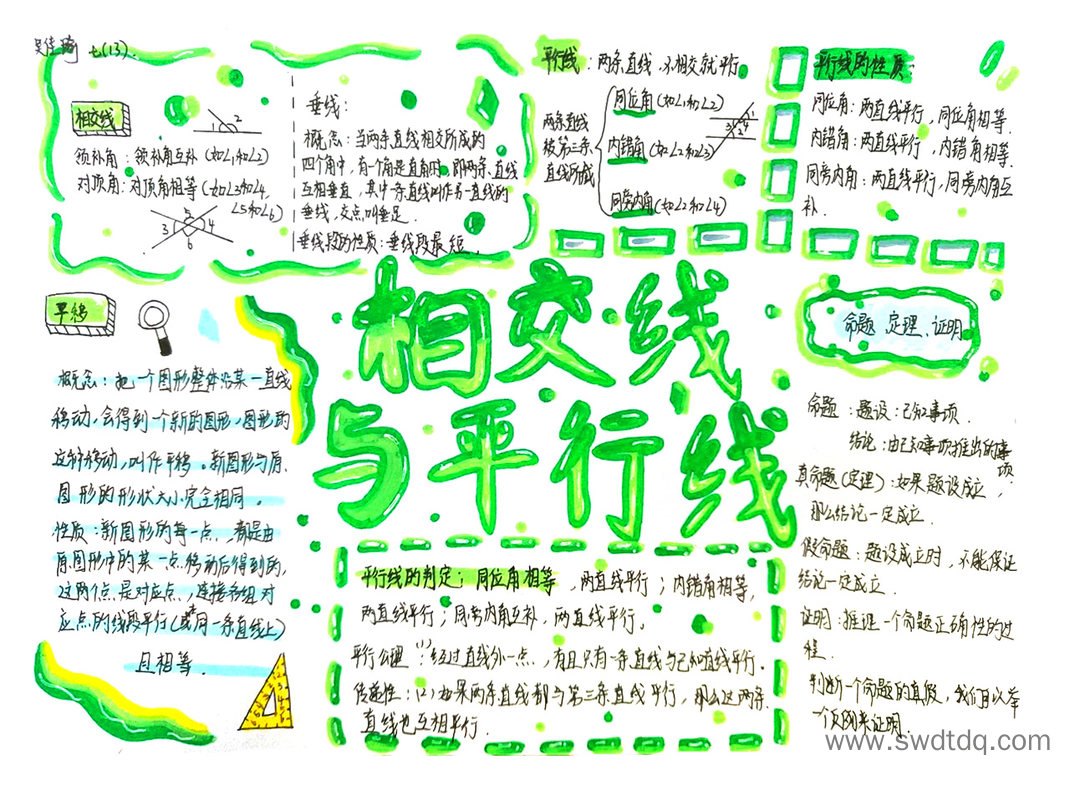 七(13).
相交线
1 2
领补角：领补角互补(如∠1和∠2)
对顶角：对顶角相等(如∠3和∠4
∠5和∠6)
3 5 4
6
垂线：
概念：当两条直线相交所成的
四个角中，有一个角是直角时，即两条直线
互相垂直，其中一条直线叫作另一直线的
垂线，交点叫垂足.
垂线段的性质：垂线段最短.
平行线：两条直线，不相交就平行
两条直线
被第三条
直线所成
同位角(如∠1和∠2)
内错角(如∠2和∠3)
同旁内角(如∠2和∠4)
1
3 4
2
平行线的性质：
同位角：两直线平行，同位角相等.
内错角：两直线平行，内错角相等.
同旁内角：两直线平行，同旁内角互
补.
相交线
与平行线
平移
概念：把一个图形整体沿某一直线
移动，会得到一个新的图形，图形的
这种移动，叫作平移。新图形与原
图形的形状大小完全相同。
性质：新图形的每一点，都是由
原图形中的某一点移动后得到的，
这两个点是对应点，连接各组对
应点的线段平行(或在同一条直线上)
且相等.
命题、定理、证明
命题：题设：已知事项
结论：由已知事项推出的事
项
真命题(定理)：如果题设成立，
那么结论一定成立.
假命题：题设成立时，不能保证
结论一定成立.
证明：推理一个命题正确性的过
程.
判断一个命题的真假，我们可以举
一个反例来证明.
平行线的判定；同位角相等，两直线平行；内错角相等，
两直线平行；同旁内角互补，两直线平行。
平行公理：(1)经过直线外一点，有且只有一条直线与已知直线平行.
传递性：(2)如果两条直线都与第三条直线平行，那么这两条
直线也互相平行.
www.swdtdq.com